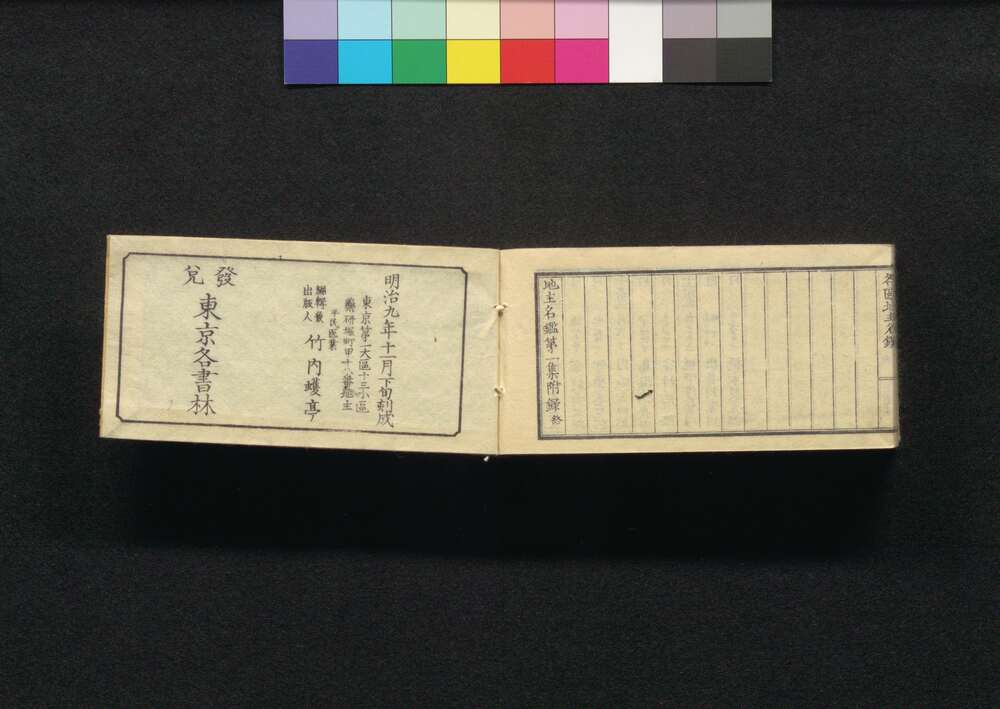 各區地主名鑑
地主名鑑第一集附録 終
明治九年十一月下旬刻成
東京第一大區十三小區
藥研堀町甲十八番地主
平民医業
編輯兼
出版人
竹内蠖亭
發兌
東京各書林